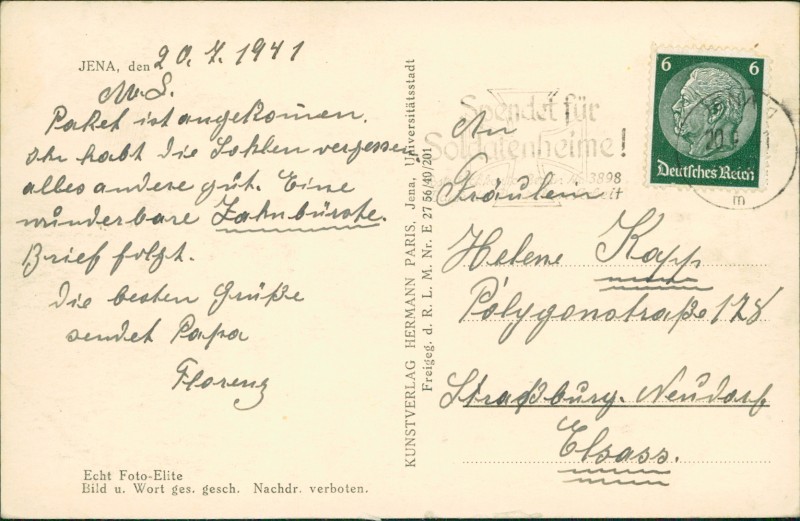 JENA, den 20.7.1941
M.L.
Paket ist angekommen.
Ihr habt die Sohlen vergessen
alles andere gut. Eine
wunderbare Zahnbürste.
Brief folgt.
Die besten Grüße
sendet Papa
Florenz
Echt Foto-Elite
Bild u. Wort ges. gesch. Nachdr. verboten.
KUNSTVERLAG HERMANN PARIS, Jena, Universitätsstadt
Freigeg. d. R. L. M. Nr. E 2756/40/201
Spendet für
Soldatenheime!
3898
6 6
Deutsches Reich
m
An
Fräulein
Helene Kapp
Polygonstraße 128
Straßburg-Neudorf
Elsass.